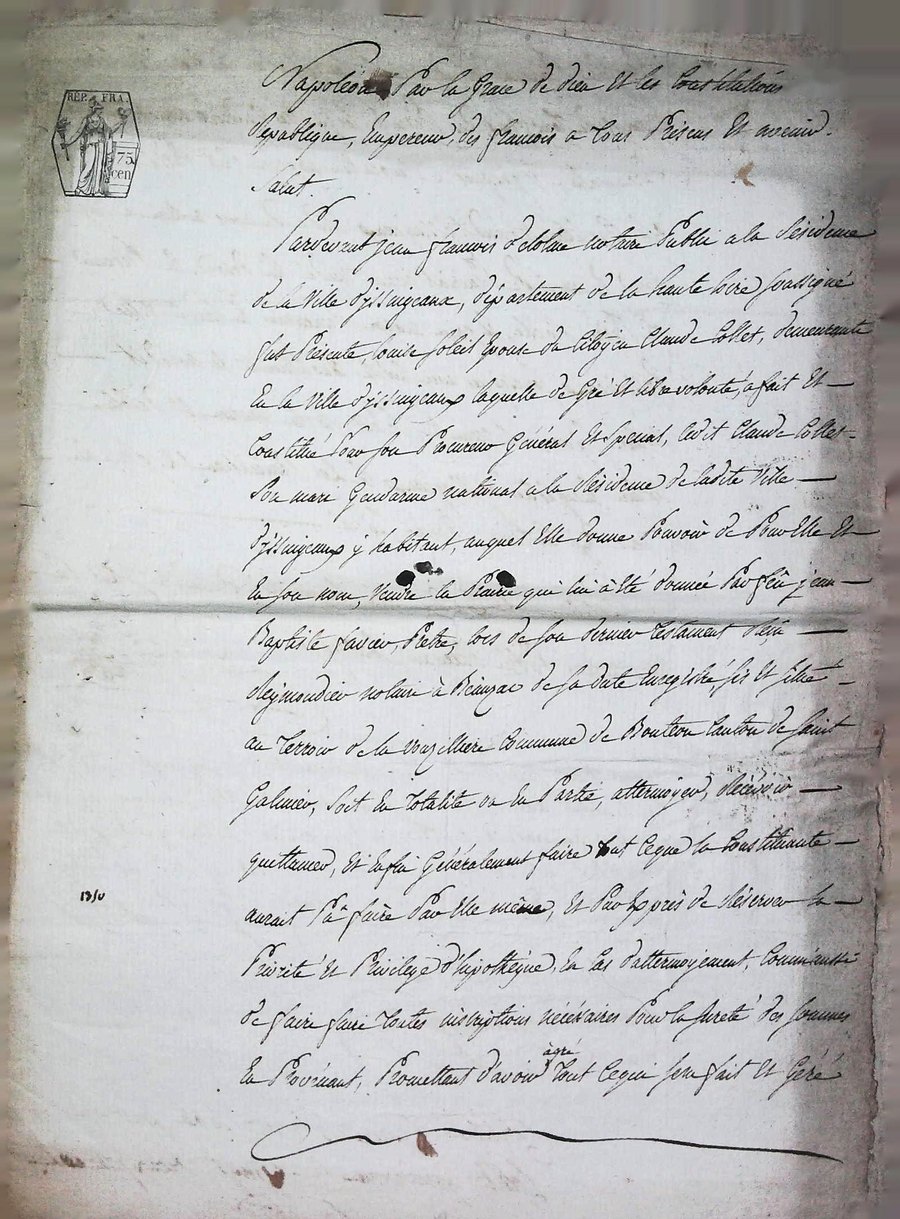 REP. FRA.
75
cen
Napoléon Par la Grace de dieu Et les Constitutions
Republique, Empereur, des francois a tous Présens Et avenir.
Salut.
Pardevant jean francois notaire Public a la Résidence
de la Ville d'yssingeaux, département de la haute loire soussigné
fut Présente, louise soleil Epouse du Citoyen Claude Collet, demeurante
En la Ville d'yssingeaux laquelle de Gré Et libre volonté, a fait Et —
Constitué Pour son Procureur Général Et Spécial, ledit Claude Collet -
Son mari Gendarme national a la Résidence de ladite Ville —
d'yssingeaux y habitant, auquel Elle donne Pouvoir de Pour Elle Et
En son nom, Vendre la Prairie qui lui a été donnée Par feu jean —
Baptiste favier, Prêtre, lors de son dernier testament Reçu —
Reymondier notaire à de sa date Enregistré, sis Et situé -
au terroir de la Commune de Canton de Saint
Galmier, Soit En totalité ou En Partie, attermoyer, Récevoir —
quittancer, Et Enfin Généralement faire tout Ceque la Constituante —
aurait Pû faire Par Elle même, Et Par Exprès de Réserver la —
Priorité Et Privilège d'hipothèque, En Cas d'attermoyement, Comme aussi
de faire faire toutes inscriptions nécéssaires Pour la sureté des sommes
En Provenant, Promettant d'avoir àgré tout Cequi sera fait Et Géré